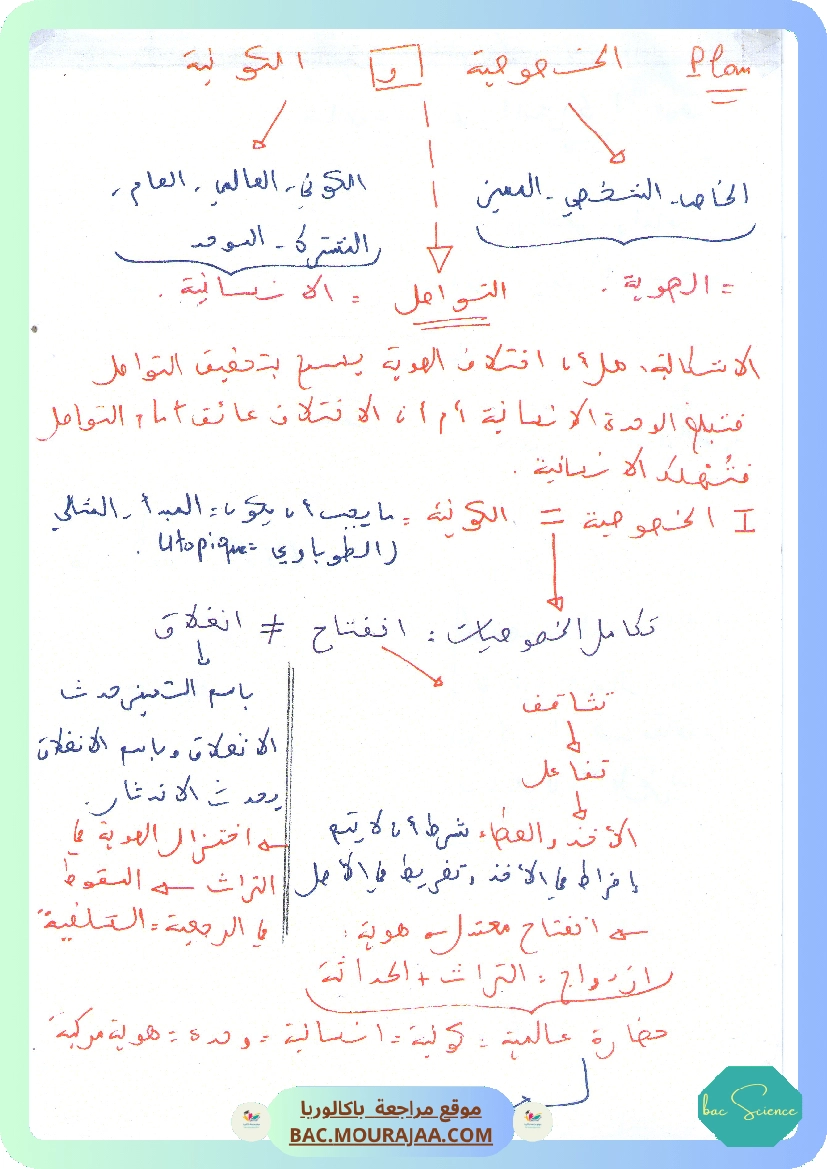 Plan الخصوصية و الكونية
الخاص - الشخصي - المميز
الكوني - العالمي - العام -
المشترك - الموحد
= الهوية .
التواصل = الإنسانية .
الاشكالية: هل أن اختلاف الهوية يسمح بتحقيق التواصل
فنبلغ الوحدة الإنسانية أم أن الاختلاف عائق أمام التواصل
فتُهلك الإنسانية .
I الخصوصية = الكونية = ما يجب أن يكون = المبدأ - المثالي
(الطوباوي = Utopique .
تكامل الخصوصيات : انفتاح ≠ انغلاق
تثاقف
تفاعل
الأخذ والعطاء شرط أن لا يتم
إفراط في الأخذ وتفريط في الأصل
انفتاح معتدل هوية :
ازدواج = التراث + الحداثة
باسم التميز حدث
الانغلاق وباسم الانغلاق
يحدث الاندثار .
اختزال الهوية في
التراث السقوط
في الرجعية = السلفية
حضارة عالمية = كونية = انسانية = وحدة = هوية مركبة
موقع مراجعة باكالوريا
BAC.MOURAJAA.COM
bac Science